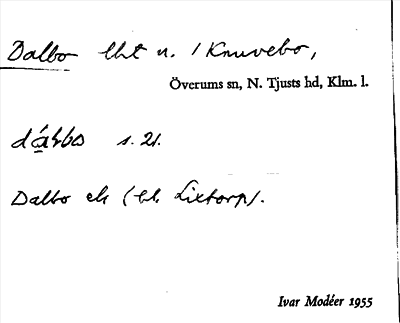 Dalbo lht u. /Knuvebo,
Överums sn, N. Tjusts hd, Klm. l.
s. 21.
Dalbo ek (bl. Lixtorp).
Ivar Modéer 1955